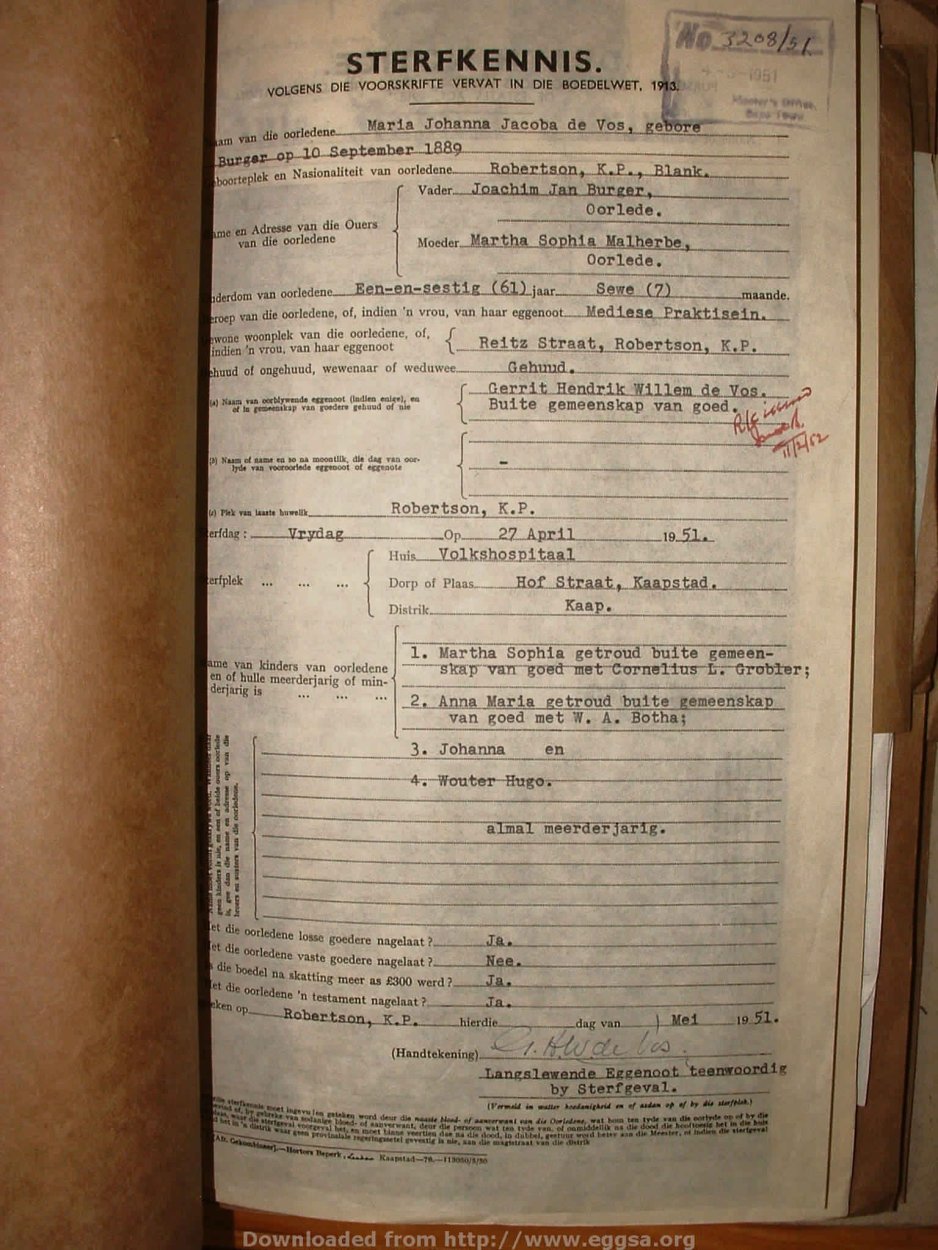 No. 3208/51
1951
Master's Office,
Cape Town
STERFKENNIS.
VOLGENS DIE VOORSKRIFTE VERVAT IN DIE BOEDELWET, 1913.
aam van die oorledene Maria Johanna Jacoba de Vos, gebore
Burger op 10 September 1889
boorteplek en Nasionaliteit van oorledene Robertson, K.P., Blank.
Vader Joachim Jan Burger,
Oorlede.
ame en Adresse van die Ouers
van die oorledene
Moeder Martha Sophia Malherbe,
Oorlede.
uderdom van oorledene Een-en-sestig (61) jaar Sewe (7) maande.
eroep van die oorledene, of, indien 'n vrou, van haar eggenoot Mediese Praktisein.
ewone woonplek van die oorledene, of,
indien 'n vrou, van haar eggenoot Reitz Straat, Robertson, K.P.
ehuud of ongehuud, wewenaar of weduwee Gehuud.
(a) Naam van oorblywende eggenoot (indien enige), en
of in gemeenskap van goedere gehuud of nie
Gerrit Hendrik Willem de Vos.
Buite gemeenskap van goed.
11/2/52
(b) Naam of name en so na moontlik, die dag van oor-
lyde van vooroorlede eggenoot of eggenote –
(c) Plek van laaste huwelik Robertson, K.P.
erfdag : Vrydag Op 27 April 19 51.
Huis Volkshospitaal
erfplek ... ... ... Dorp of Plaas Hof Straat, Kaapstad.
Distrik Kaap.
ame van kinders van oorledene
en of hulle meerderjarig of min-
derjarig is ... ... ...
1. Martha Sophia getroud buite gemeen-
skap van goed met Cornelius L. Grobler;
2. Anna Maria getroud buite gemeenskap
van goed met W. A. Botha;
3. Johanna en
4. Wouter Hugo.
almal meerderjarig.
geen kinders is nie, en een of beide ouers oorlede
is, gee dan die name en adresse op van die
broers en susters van die oorledene.
et die oorledene losse goedere nagelaat ? Ja.
et die oorledene vaste goedere nagelaat ? Nee.
s die boedel na skatting meer as £300 werd ? Ja.
et die oorledene 'n testament nagelaat ? Ja.
eken op Robertson, K.P. hierdie dag van Mei 19 51.
(Handtekening) G.H.W. de Vos.
Langslewende Eggenoot teenwoordig
by Sterfgeval.
(Vermeld in watter hoedanigheid en of aldan op of by die sterfplek.)
Hortors Beperk, Kaapstad
Downloaded from http://www.eggsa.org